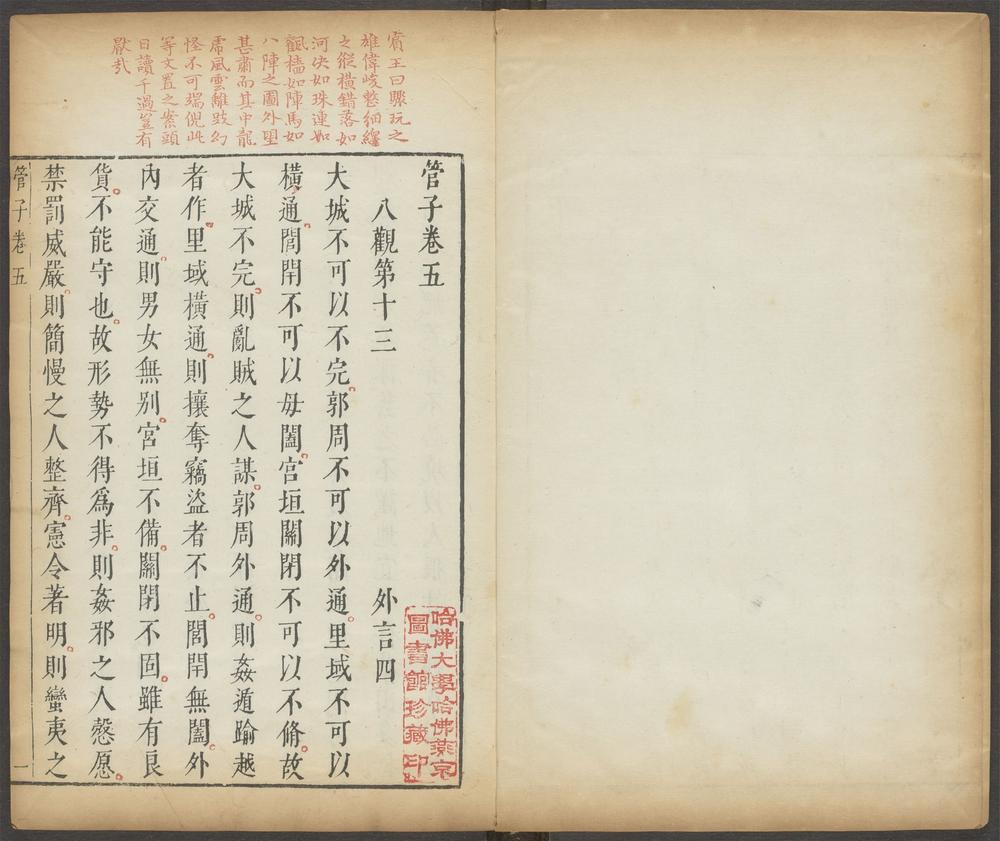 賓王曰驟玩之
雄偉峻整細繹
之縱橫錯落如
河決如珠連如
颿檣如陣馬如
八陣之圖外壁
甚肅而其中龍
虎風雲離跂幻
怪不可端倪此
等文置之案頭
日讀千過豈有
厭哉
管子卷五
八觀第十三 外言四
大城不可以不完郭周不可以外通里域不可以
橫通閭閈不可以毋闔宮垣關閉不可以不脩故
大城不完則亂賊之人謀郭周外通則姦遁踰越
者作里域橫通則攘奪竊盜者不止閭閈無闔外
內交通則男女無别宮垣不備關閉不固雖有良
貨不能守也故形勢不得爲非則姦邪之人慤愿
禁罰威嚴則簡慢之人整齊憲令著明則蠻夷之
管子卷五 一
哈佛大學哈佛燕京
圖書館珍藏印